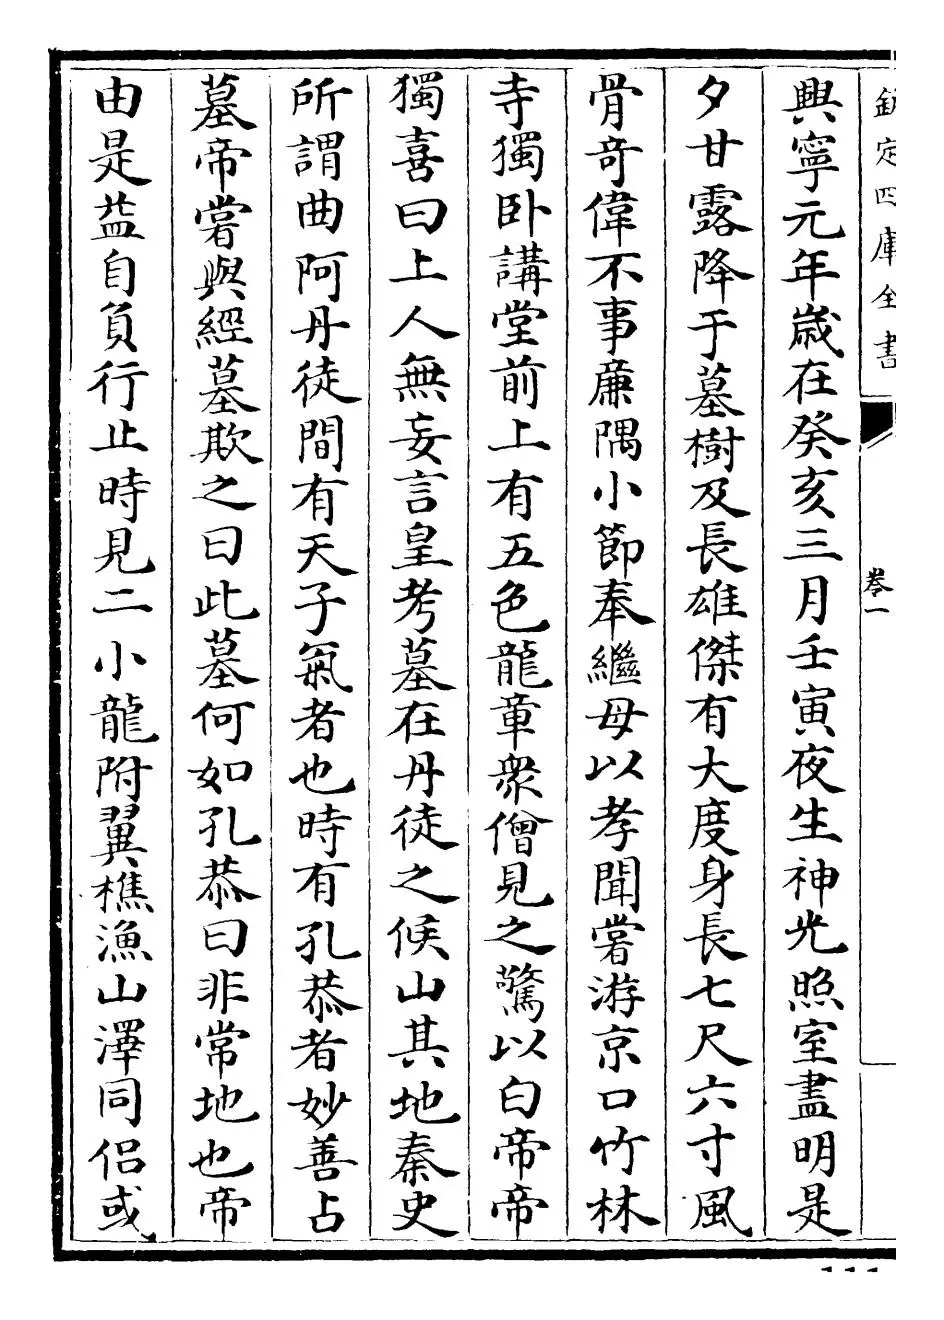 欽定四庫全書
卷一
興寧元年歲在癸亥三月壬寅夜生神光照室盡明是
夕甘露降于墓樹及長雄傑有大度身長七尺六寸風
骨竒偉不事廉隅小節奉繼母以孝聞嘗游京口竹林
寺獨卧講堂前上有五色龍章衆僧見之驚以白帝帝
獨喜曰上人無妄言皇考墓在丹徒之候山其地秦史
所謂曲阿丹徒間有天子氣者也時有孔恭者妙善占
墓帝嘗與經墓欺之曰此墓何如孔恭曰非常地也帝
由是益自負行止時見二小龍附翼樵漁山澤同侣或